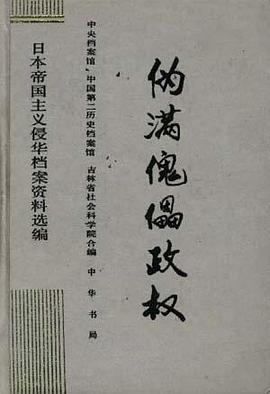 伪满傀儡政权
中央档案馆、中国第二历史档案馆 吉林省社会科学院合编 中华书局
日本帝国主义侵华档案资料选编